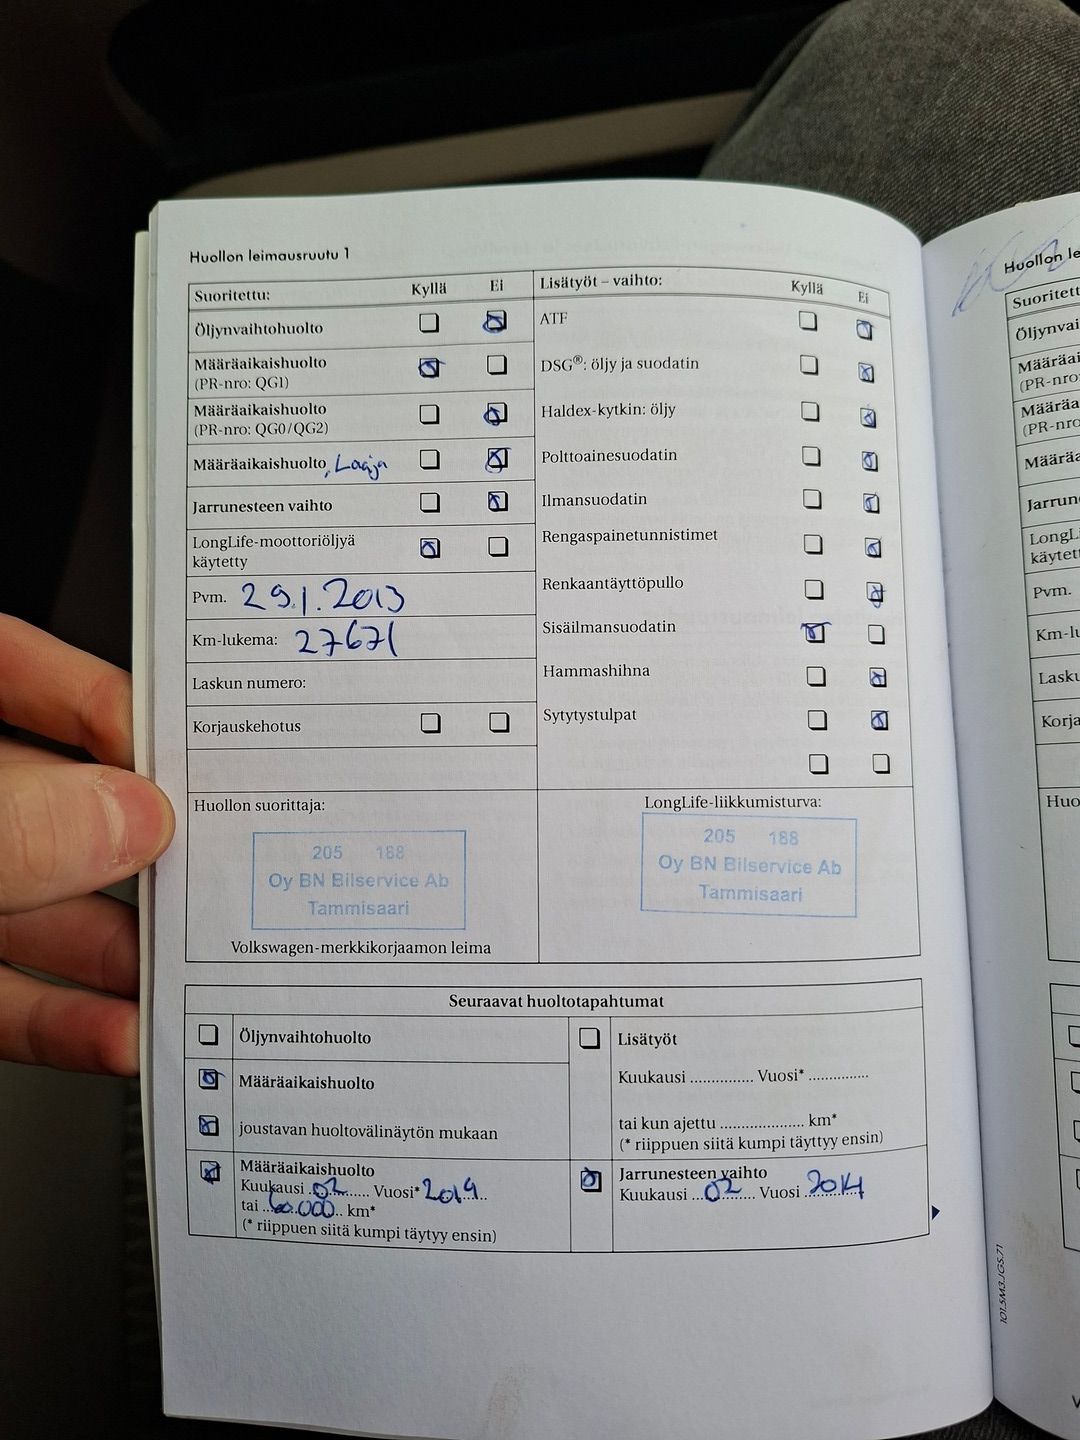 Huollon leimausruutu 1
Suoritettu: Kyllä Ei
Öljynvaihtohuolto
Määräaikaishuolto
(PR-nro: QG1)
Määräaikaishuolto
(PR-nro: QG0/QG2)
Määräaikaishuolto, Laaja
Jarrunesteen vaihto
LongLife-moottoriöljyä
käytetty
Pvm. 29.1.2013
Km-lukema: 27671
Laskun numero:
Korjauskehotus
Lisätyöt – vaihto: Kyllä Ei
ATF
DSG®: öljy ja suodatin
Haldex-kytkin: öljy
Polttoainesuodatin
Ilmansuodatin
Rengaspainetunnistimet
Renkaantäyttöpullo
Sisäilmansuodatin
Hammashihna
Sytytystulpat
Huollon suorittaja:
205 188
Oy BN Bilservice Ab
Tammisaari
Volkswagen-merkkikorjaamon leima
LongLife-liikkumisturva:
205 188
Oy BN Bilservice Ab
Tammisaari
Seuraavat huoltotapahtumat
Öljynvaihtohuolto
Määräaikaishuolto
joustavan huoltovälinäytön mukaan
Määräaikaishuolto
Kuukausi ..02...... Vuosi* 2014..
tai ..60.000.. km*
(* riippuen siitä kumpi täytyy ensin)
Lisätyöt
Kuukausi ............... Vuosi* ..............
tai kun ajettu .................... km*
(* riippuen siitä kumpi täyttyy ensin)
Jarrunesteen vaihto
Kuukausi ...02....... Vuosi 2014
101.5M3.JGS.71
Huollon le
Suoritett
Öljynvai
Määräai
(PR-nro:
Määräa
(PR-nro
Määräa
Jarrun
LongLi
käytett
Pvm.
Km-lu
Lasku
Korja
Huo
V